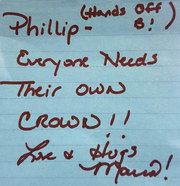 Phillip - (Hands Off
B!)
Everyone Needs
Their Own
CROWN!!
Love & Hugs